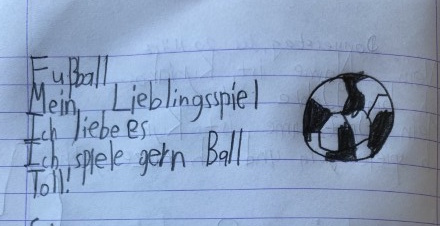 Fußball
Mein Lieblingsspiel
Ich liebe es
Ich spiele gern Ball
Toll!